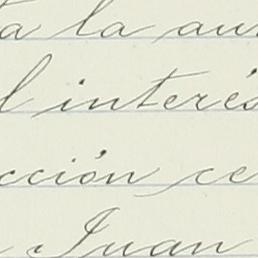 a la au
l interés
cción ce
Juan